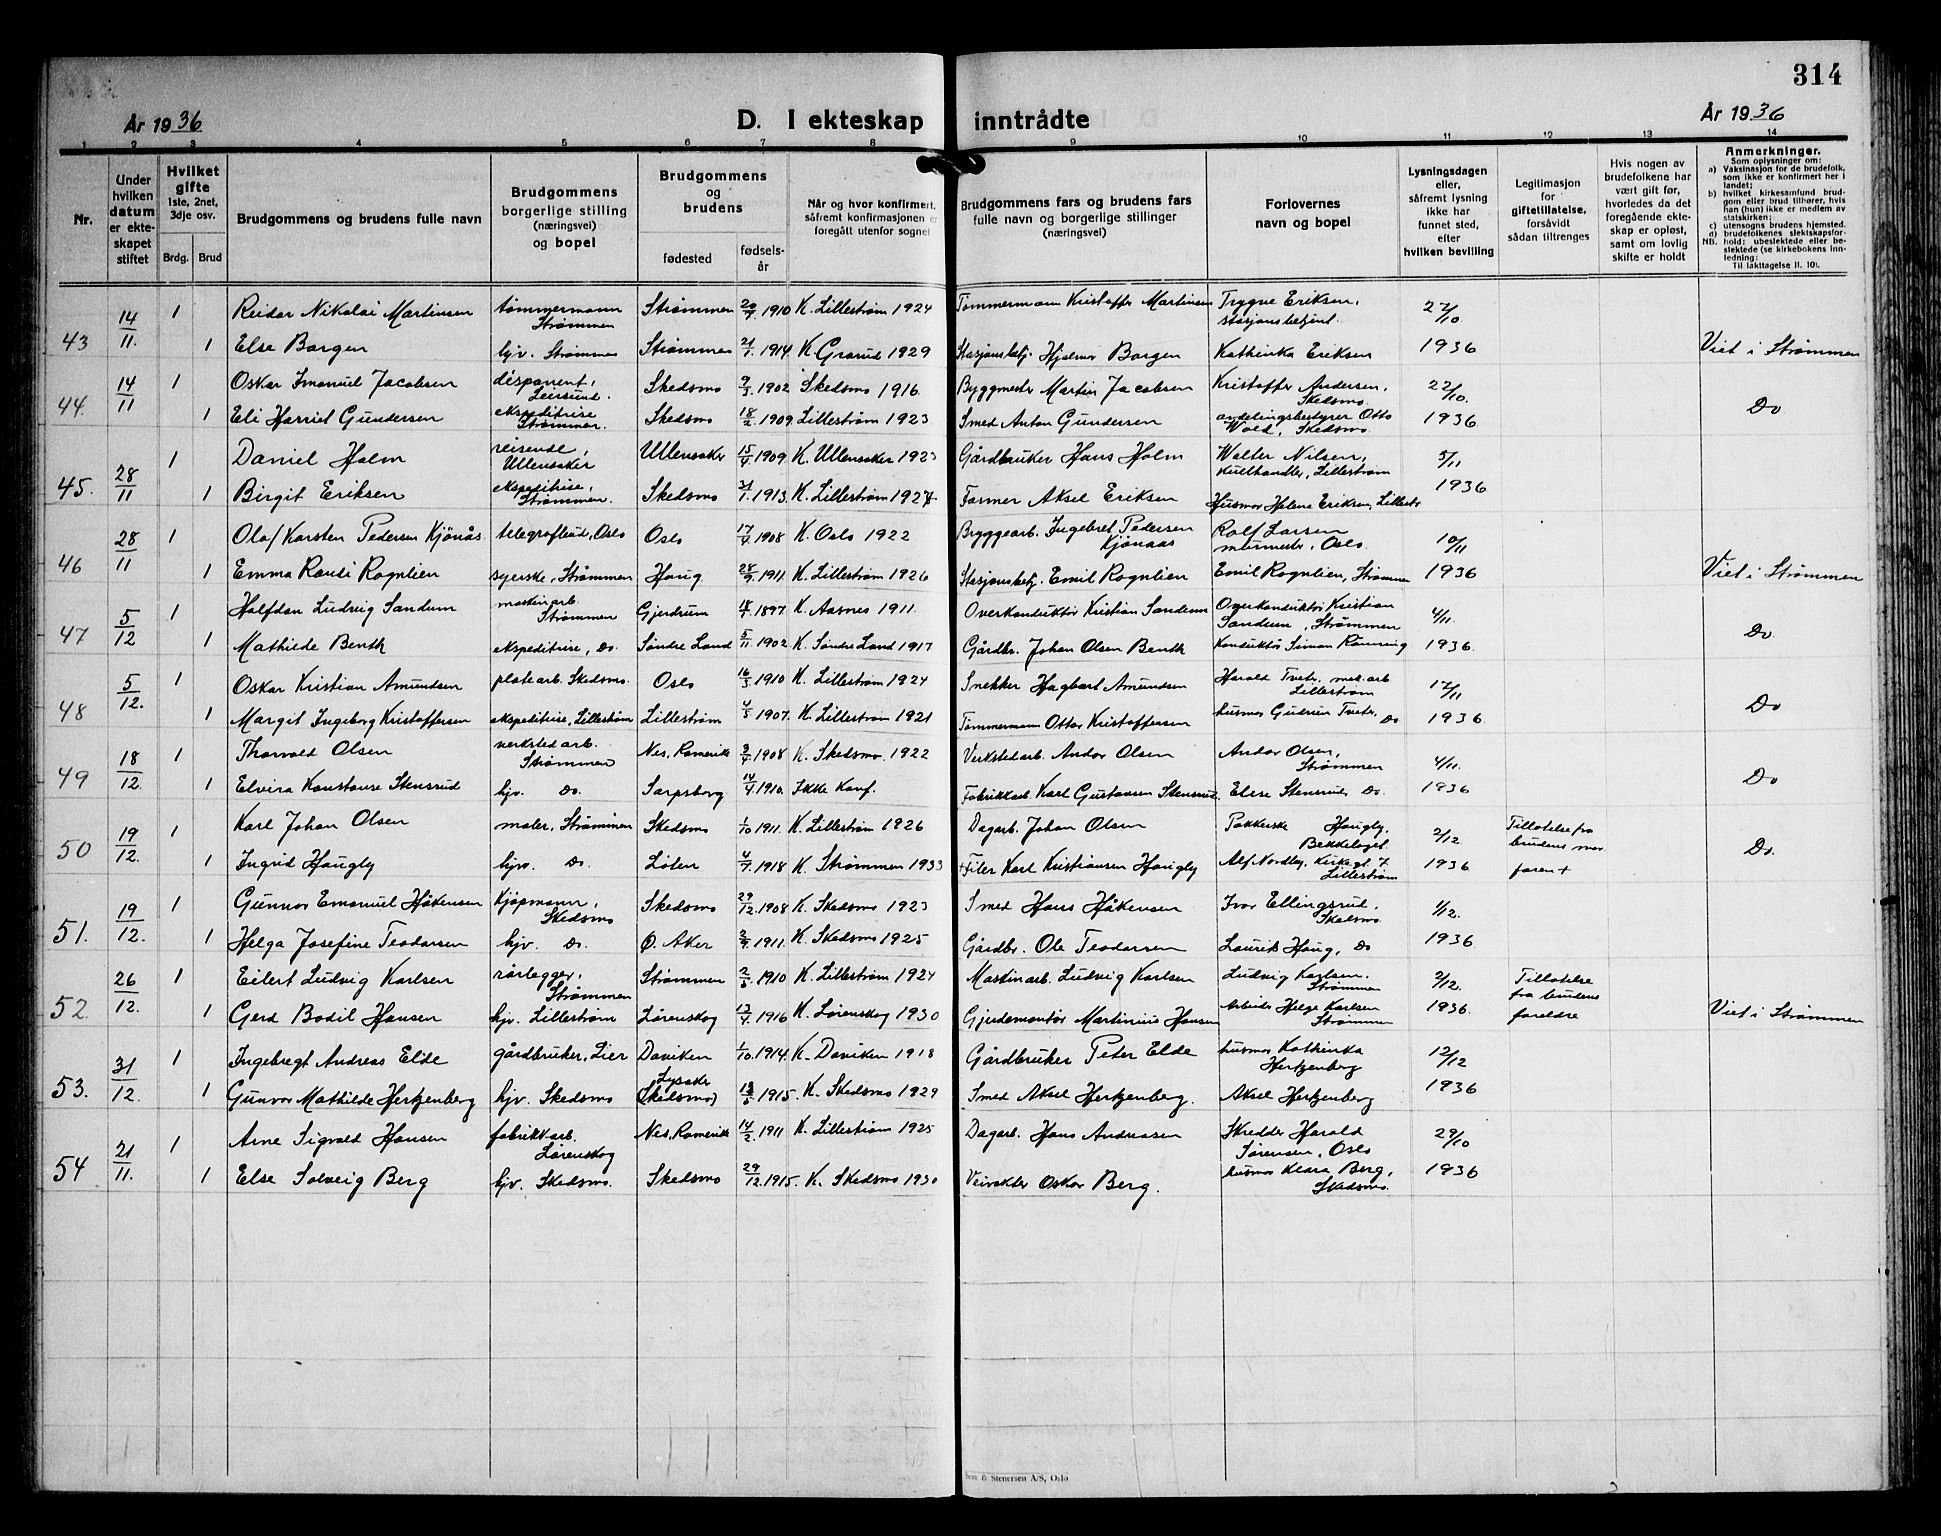 314
År 1936
D. I ekteskap inntrådte
År 1936
1 2 3 4 5 6 7 8 9 10 11 12 13 14
Nr.
Under hvilken datum er ekteskapet stiftet
Hvilket gifte 1ste, 2net, 3dje osv.
Brdg. Brud
Brudgommens og brudens fulle navn
Brudgommens borgerlige stilling (næringsvei) og bopel
Brudgommens og brudens
fødested
fødselsår
Når og hvor konfirmert, såfremt konfirmasjonen er foregått utenfor sognet
Brudgommens fars og brudens fars fulle navn og borgerlige stillinger (næringsvei)
Forlovernes navn og bopel
Lysningsdagen eller, såfremt lysning ikke har funnet sted, efter hvilken bevilling
Legitimasjon for giftetillatelse, forsåvidt sådan tiltrenges
Hvis nogen av brudefolkene har vært gift før, hvorledes da det foregående ekteskap er opløst, samt om lovlig skifte er holdt
Anmerkninger.
Som oplysninger om:
a) Vaksinasjon for de brudefolk, som ikke er konfirmert her i landet;
b) hvilket kirkesamfund brudgom eller brud tilhører, hvis han (hun) ikke er medlem av statskirken;
c) utensogns brudens hjemsted.
d) brudefolkenes slektskapsforhold: ubeslektede eller beslektede (se kirkebokens innledning:
NB.
Til iakttagelse II. 10).
43 14/11. 1 Reidar Nikolai Martinsen tømmermann Strømmen Strømmen 20/7 1910 K. Lillestrøm 1924 Tømmermann Kristoffer Martinsen Trygve Eriksen, stasjonsbetjent. 27/10
1 Else Borgen hjv. Strømmen Strømmen 21/1 1914 K. Grorud 1929 Stasjonsbetj. Hjalmar Borgen Kathinka Eriksen 1936 Viet i Strømmen
44. 14/11 1 Oskar Imanuel Jacobsen disponent, Leirsund. Skedsmo 9/3 1902 Skedsmo 1916 Byggmester Martin Jacobsen Kristoffer Andersen, Skedsmo. 22/10.
1 Eli Harriet Gundersen ekspeditrise Strømmen. Skedsmo 18/2 1909. Lillestrøm 1923 Smed Anton Gundersen avdelingsbestyrer Otto Wold, Skedsmo. 1936 Do
45. 28/11 1 Daniel Holm reisende, Ullensaker Ullensaker 15/4 1909. K. Ullensaker 1923 Gårdbruker Hans Holm Walter Nilsen, kullhandler, Lillestrøm 5/11
1 Birgit Eriksen ekspeditrise, Strømmen. Skedsmo 31/1 1913. K. Lillestrøm 1927 Farmer Aksel Eriksen Husmor Helene Eriksen, Lillestr 1936
46 28/11 1 Olaf Karsten Pedersen Kjönås telegrafbud, Oslo Oslo 17/4 1908 K. Oslo 1922 Bryggearb. Ingebret Pedersen Kjönaas Rolf Larsen murmester, Oslo. 10/11
1 Emma Randi Rognlien syerske, Strømmen Haug 28/9 1911. K. Lillestrøm 1926 Stasjonsbetj. Emil Rognlien Emil Rognlien, Strømmen 1936 Viet i Strømmen
47 5/12 1 Halfdan Ludvig Sandum maskinarb. Strømmen Gjerdrum 18/1 1897 K. Aasnes 1911. Overkonduktör Kristian Sandum Overkonduktör Kristian Sandum, Strømmen 4/11.
1 Mathilde Benth ekspeditrise, Do. Søndre Land 5/11 1902 K. Søndre Land 1917 Gårdbr. Johan Olsen Benth Konduktör Simon Rønning 1936. Do
48 5/12. 1 Oskar Kristian Amundsen platearb. Skedsmo. Oslo 16/3 1910 K. Lillestrøm 1924 Snekker Hagbart Amundsen Harald Tveter, mek. arb Lillestrøm 12/11
1 Margit Ingeborg Kristoffersen ekspeditrise, Lillestrøm Lillestrøm 4/5 1907. K. Lillestrøm 1921 Tømmermann Ottar Kristoffersen husmor Gudrun Tveter, Do 1936. Do
49 18/12. 1 Thorvald Olsen verkstedarb. Strømmen Nes, Romerike 3/4 1908 K. Skedsmo. 1922 Verkstedarb. Andor Olsen Andor Olsen, Strømmen 4/11.
1 Elvira Konstanse Stensrud hjv. Do. Sarpsborg 14/4 1910. Ikke Konf. Fabrikkarb. Karl Gustavsen Stensrud. Elise Stensrud, Do. 1936 Do
50 19/12. 1 Karl Johan Olsen maler, Strømmen Skedsmo 1/10 1911. K. Lillestrøm 1926 Dagarb. Johan Olsen Pakkerske Haugly, Bekkelaget. 2/12 Tillatelse fra brudens mor
1 Ingrid Haugly hjv. Do. Løten 4/9 1918 K. Strømmen 1933 + Filer Karl Kristiansen Haugly Alf Nordby, Kirkegt. 7. Lillestrøm 1936 faren + Do.
51. 19/12. 1 Gunnar Emanuel Håkensen Kjøpmann, Skedsmo Skedsmo 29/12 1908 K. Skedsmo 1923 Smed Hans Håkensen Ivar Ellingsrud, Skedsmo. 1/12.
1 Helga Josefine Teodorsen hjv. Do. Ø. Aker 2/9 1911. K. Skedsmo 1925 Gårdbr. Ole Teodorsen Laurits Haug, Do 1936
52. 26/12. 1 Eilert Ludvig Karlsen rørlegger, Strømmen Strømmen 2/5 1910 K. Lillestrøm 1924 Maskinarb. Ludvig Karlsen Ludvig Karlsen. Strømmen 2/12. Tillatelse fra brudens foreldre
1 Gerd Bodil Hansen hjv. Lillestrøm Lørenskog 13/4 1916 K. Lørenskog 1930 Gjerdemontør Martinius Hansen Arbeider Helge Karlsen Strømmen 1936. Viet i Strømmen
53. 31/12. 1 Ingebregt Andreas Elde gårdbruker, Lier Daviken 1/10. 1914. K. Daviken 1918 Gårdbruker Peter Elde husmor Kathinka Hertzenberg 12/12
1 Gunvor Mathilde Hertzenberg hjv. Skedsmo Lysaker (Skedsmo) 13/5 1915. K. Skedsmo 1929 Smed Aksel Hertzenberg. Aksel Hertzenberg 1936
54 21/11. 1 Arne Sigvald Hansen fabrikkarb. Lørenskog Nes, Romerike 14/2 1911 K. Lillestrøm 1925 Dagarb. Hans Andreasen Skredder Harald Sørensen, Oslo 29/10
1 Else Solveig Berg hjv. Skedsmo. Skedsmo 29/12. 1915. K. Skedsmo 1930 Veivokter Oskar Berg. husmor Klara Berg, Skedsmo. 1936
Sem & Stenersen A/S, Oslo